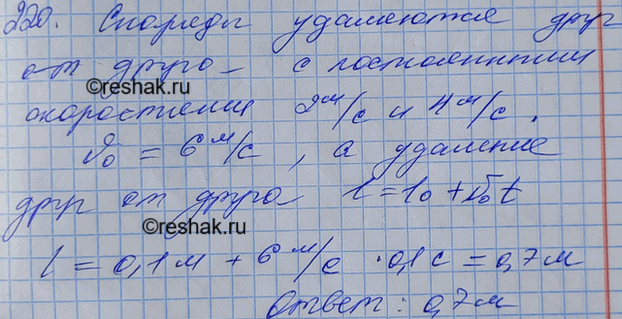 220. Снаряды удаляются друг
от друга с постоянными
©reshak.ru
скоростями 2 м/с и 4 м/с.
υ₀ = 6 м/с, а удаление
друг от друга l = l₀ + υ₀t
©reshak.ru
l = 0,1 м + 6 м/с · 0,1 с = 0,7 м
Ответ: 0,7 м